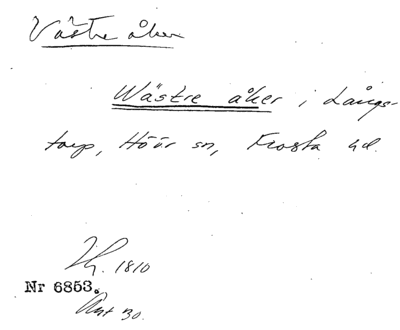 Västra åker
Wästre åker i Långs-
torp, Höör sn, Frosta hd.
1810
Nr 6853.
30.